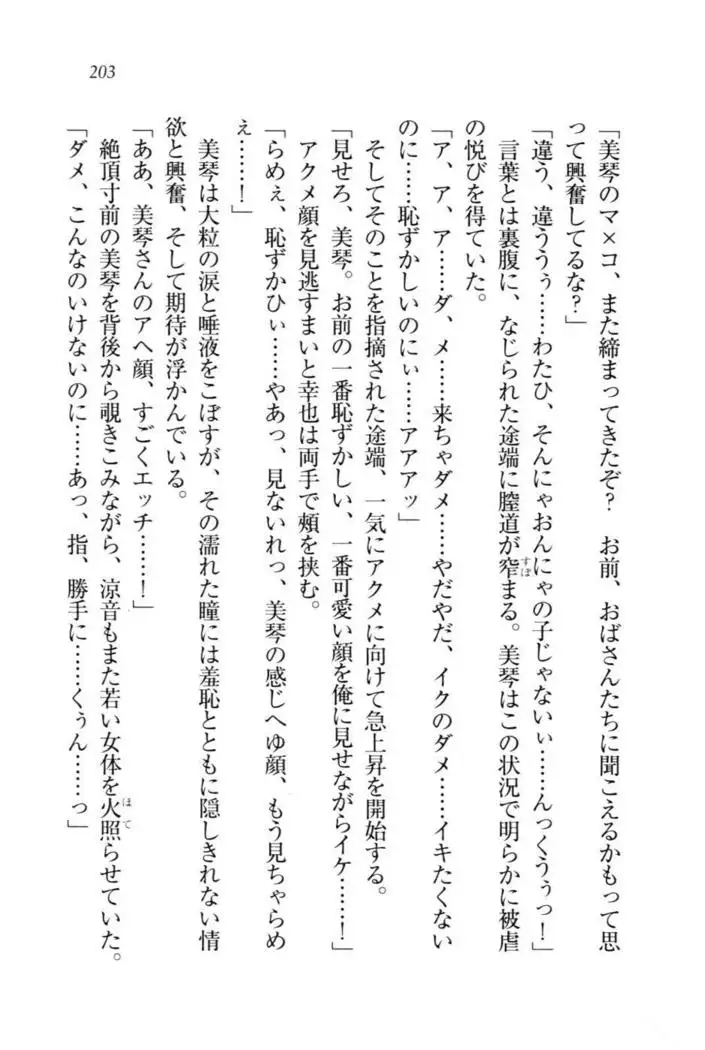 203
「美琴のマ×コ、また締まってきたぞ？　お前、おばさんたちに聞こえるかもって思
って興奮してるな？」
「違う、違ううぅ……わたひ、そんにゃおんにゃの子じゃないぃ……んっくうぅっ！」
　言葉とは裏腹に、なじられた途端に膣道が窄まる。美琴はこの状況で明らかに被虐
の悦びを得ていた。
「ア、ア、ア……ダ、メ……来ちゃダメ……やだやだ、イクのダメ……イキたくない
のに……恥ずかしいのにぃ……アアアッ」
　そしてそのことを指摘された途端、一気にアクメに向けて急上昇を開始する。
「見せろ、美琴。お前の一番恥ずかしい、一番可愛い顔を俺に見せながらイケ……！」
　アクメ顔を見逃すまいと幸也は両手で頰を挟む。
「らめぇ、恥ずかひぃ……やあっ、見ないれっ、美琴の感じへゆ顔、もう見ちゃらめ
ぇ……！」
　美琴は大粒の涙と唾液をこぼすが、その濡れた瞳には羞恥とともに隠しきれない情
欲と興奮、そして期待が浮かんでいる。
「ああ、美琴さんのアヘ顔、すごくエッチ……！」
　絶頂寸前の美琴を背後から覗きこみながら、涼音もまた若い女体を火照らせていた。
「ダメ、こんなのいけないのに……あっ、指、勝手に……くぅん……っ」